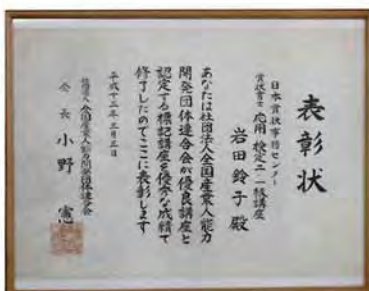 表彰状
日本賞状事務センター
賞状書士 応用 検定二・一級講座
岩田鈴子殿
あなたは社団法人全国産業人能力
開発団体連合会が優良講座と
認定する標記講座を優秀な成績で
修了したのでここに表彰します
平成十三年三月三日
社団法人全国産業人能力開発団体連合会
会長 小野憲